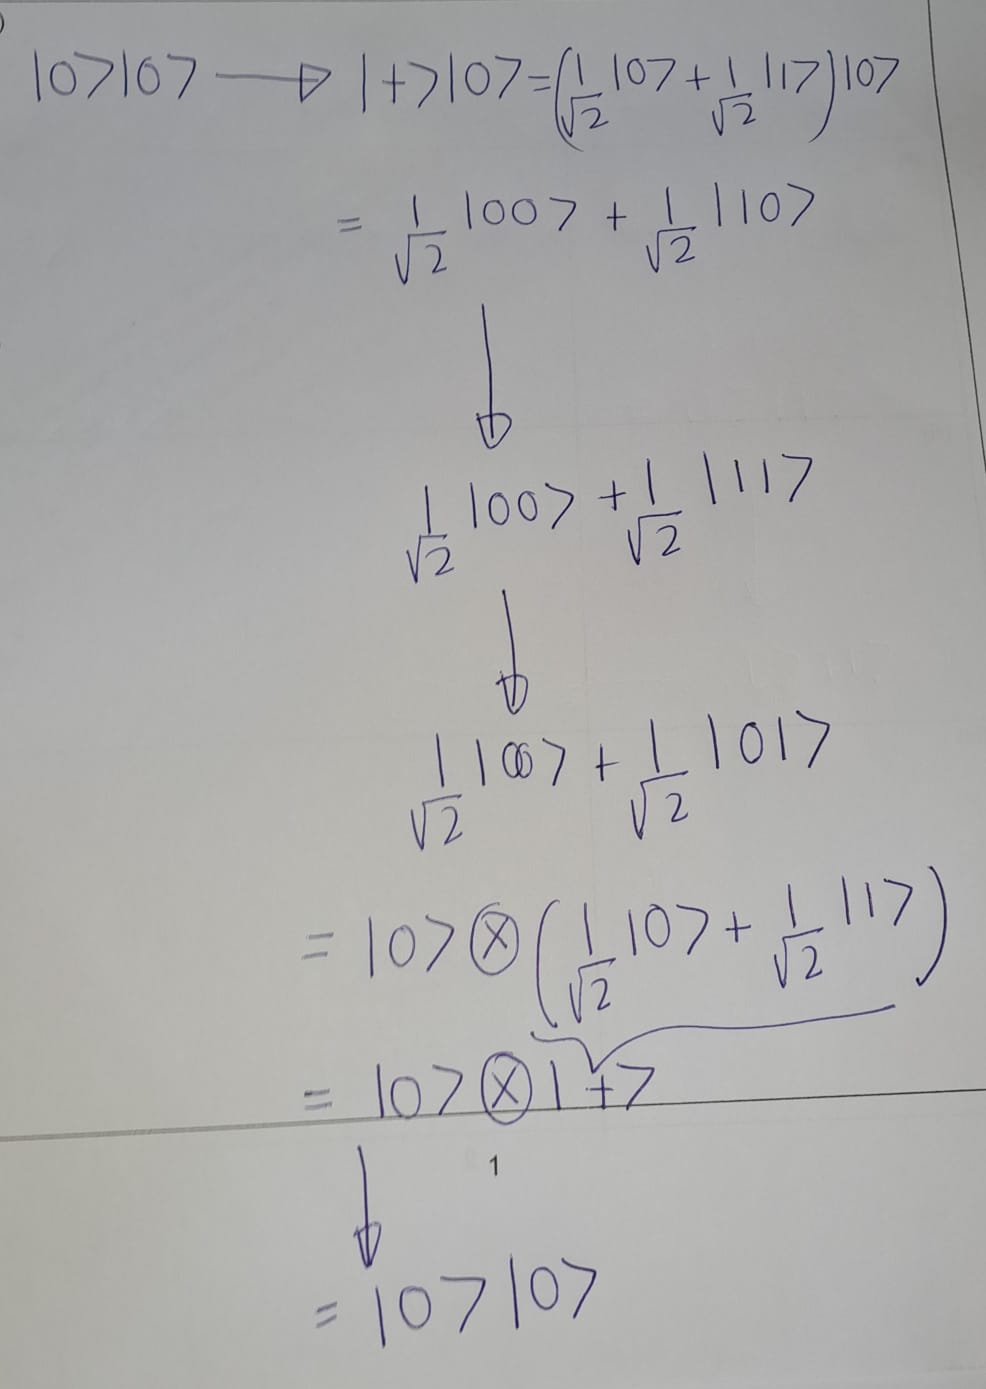 |0>|0> → |+>|0> = (1/√2 |0> + 1/√2 |1>)|0>
= 1/√2 |00> + 1/√2 |10>
↓
1/√2 |00> + 1/√2 |11>
↓
1/√2 |00> + 1/√2 |01>
= |0> ⊗ (1/√2 |0> + 1/√2 |1>)
= |0> ⊗ |+>
1
↓
= |0>|0>